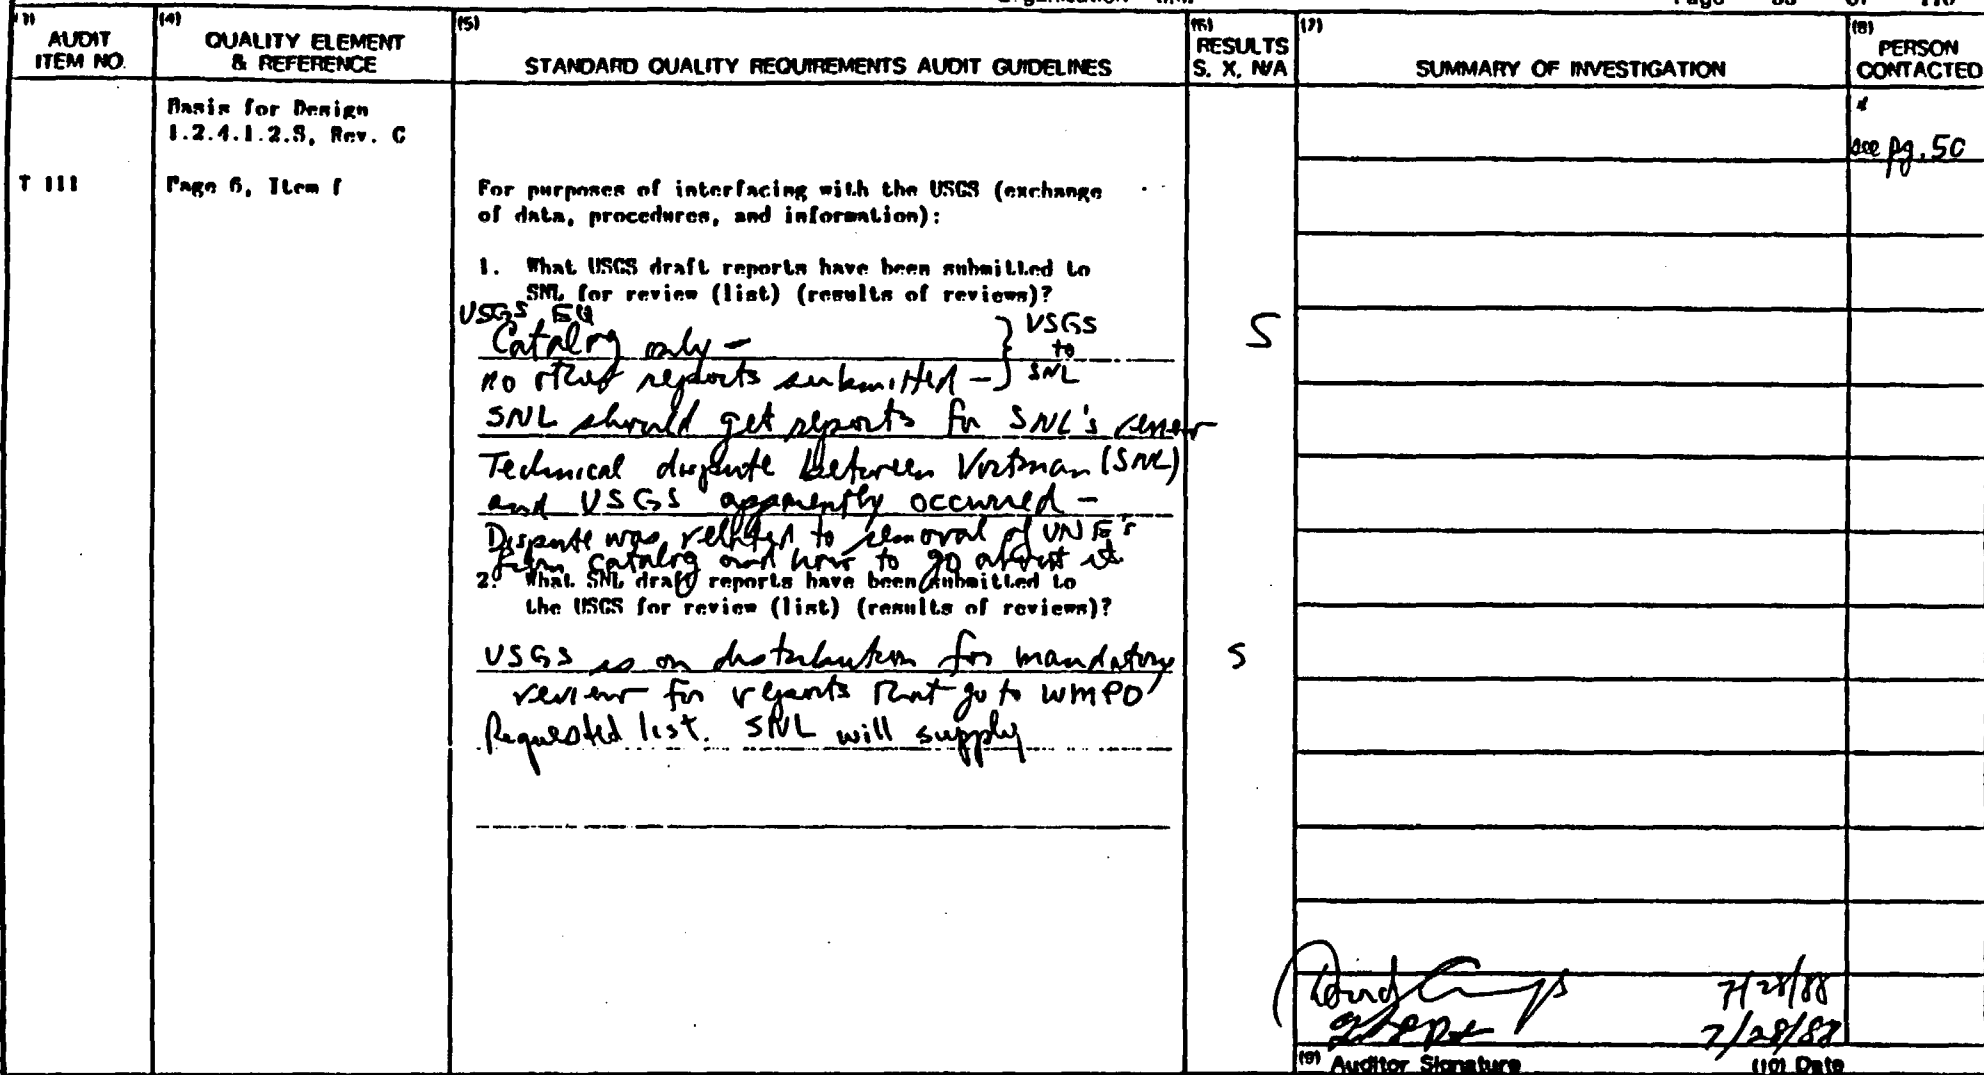 Page 110
(4) (5) (6) (7) (8)
AUDIT ITEM NO.
QUALITY ELEMENT & REFERENCE
STANDARD QUALITY REQUIREMENTS AUDIT GUIDELINES
RESULTS S, X, N/A
SUMMARY OF INVESTIGATION
PERSON CONTACTED
Basis for Design
1.2.4.1.2.S, Rev. C
see pg. 50
T 111
Page 6, Item f
For purposes of interfacing with the USGS (exchange
of data, procedures, and information):
1. What USGS draft reports have been submitted to
SNL for review (list) (results of reviews)?
USGS EQ
Catalog only - } USGS to SNL
no other reports submitted -
S
SNL should get reports for SNL's review
Technical dispute between Vortman (SNL)
and USGS apparently occurred -
Dispute was related to removal of UNE's
from catalog and how to go about it
2. What SNL draft reports have been submitted to
the USGS for review (list) (results of reviews)?
USGS is on distribution for mandatory
S
review for reports that go to WMPO
Requested list. SNL will supply
7/28/88
7/28/88
(9) Auditor Signature
(10) Date